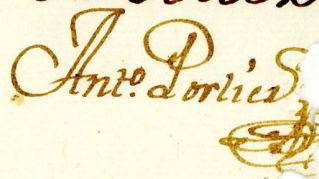 Anto. Porlier